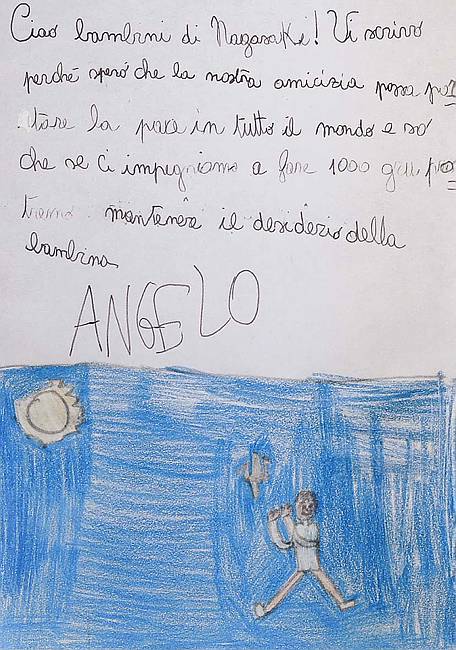 Ciao bambini di Nagasaki! Vi scrivo
perché sperò che la nostra amicizia possa por
tare la pace in tutto il mondo e so
che se ci impegniamo a fare 1000 gru po
tremo mantenere il desiderio della
bambina
ANGELO